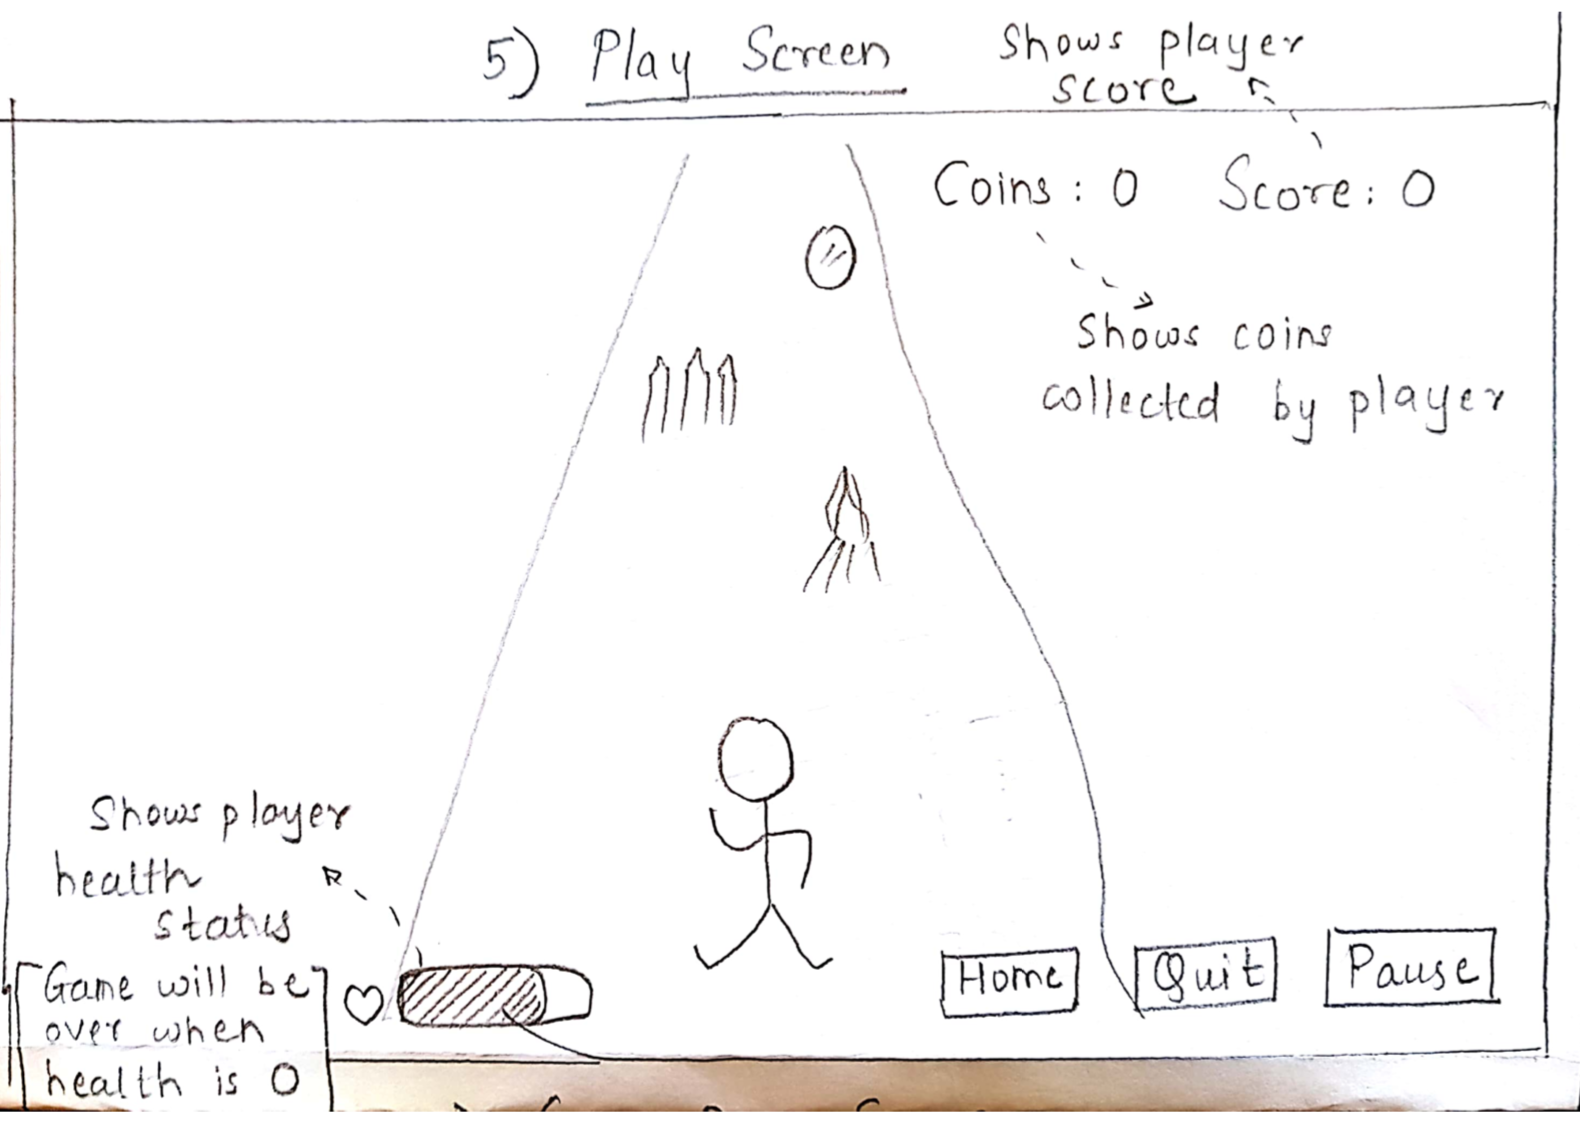 5) Play Screen
Shows player
score
Coins : 0 Score: 0
Shows coins
collected by player
Shows player
health
status
Game will be
over when
health is 0
Home Quit Pause